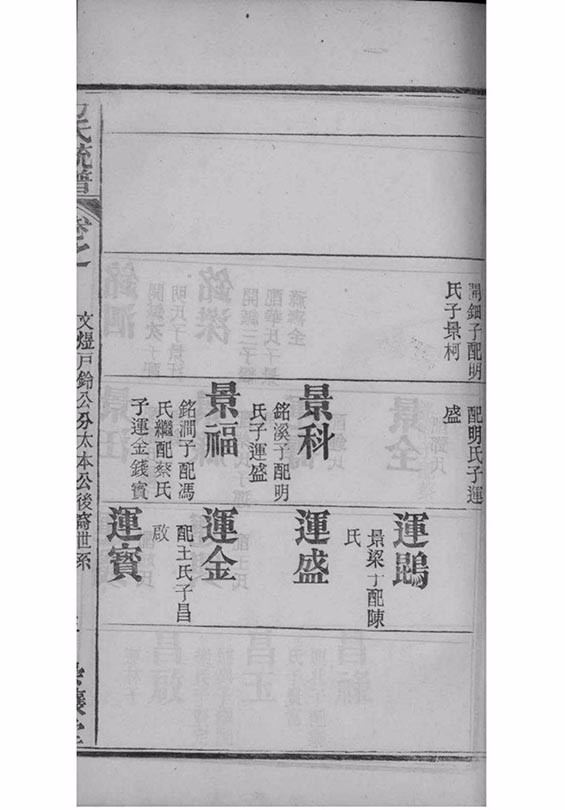 開鈿子配明
氏子景柯
配明氏子運
盛
景科
銘溪子配明
氏子運盛
景福
銘澗子配馮
氏繼配蔡氏
子運金錢賓
運鵾
景梁子配陳
氏
運盛
運金
配王氏子昌
啟
運賓
氏統譜
卷之
文煜戶鈴公分太本公後裔世系